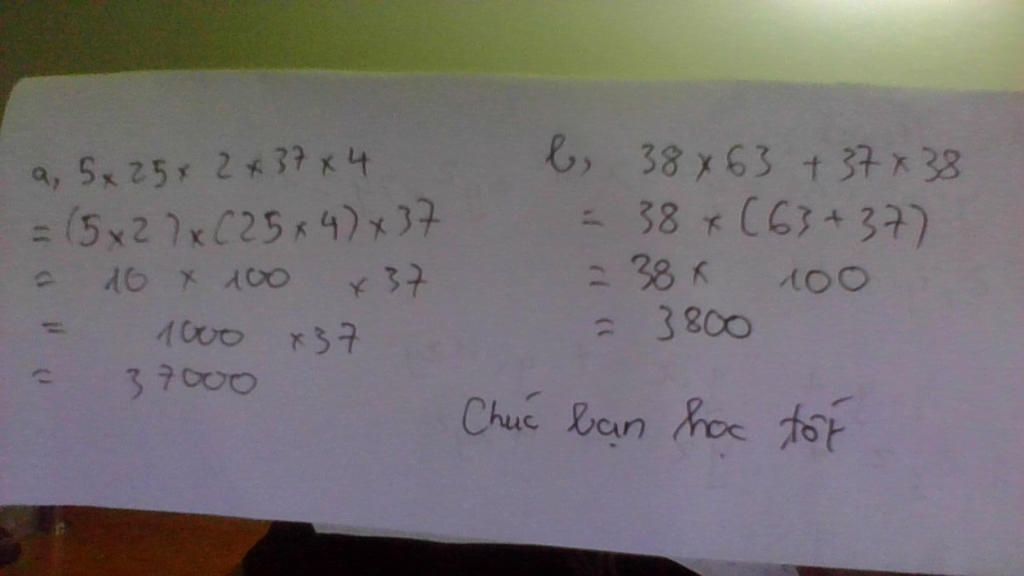 a, 5 x 25 x 2 x 37 x 4
= (5 x 2) x (25 x 4) x 37
= 10 x 100 x 37
= 1000 x 37
= 37000
b, 38 x 63 + 37 x 38
= 38 x (63 + 37)
= 38 x 100
= 3800
Chúc bạn học tốt